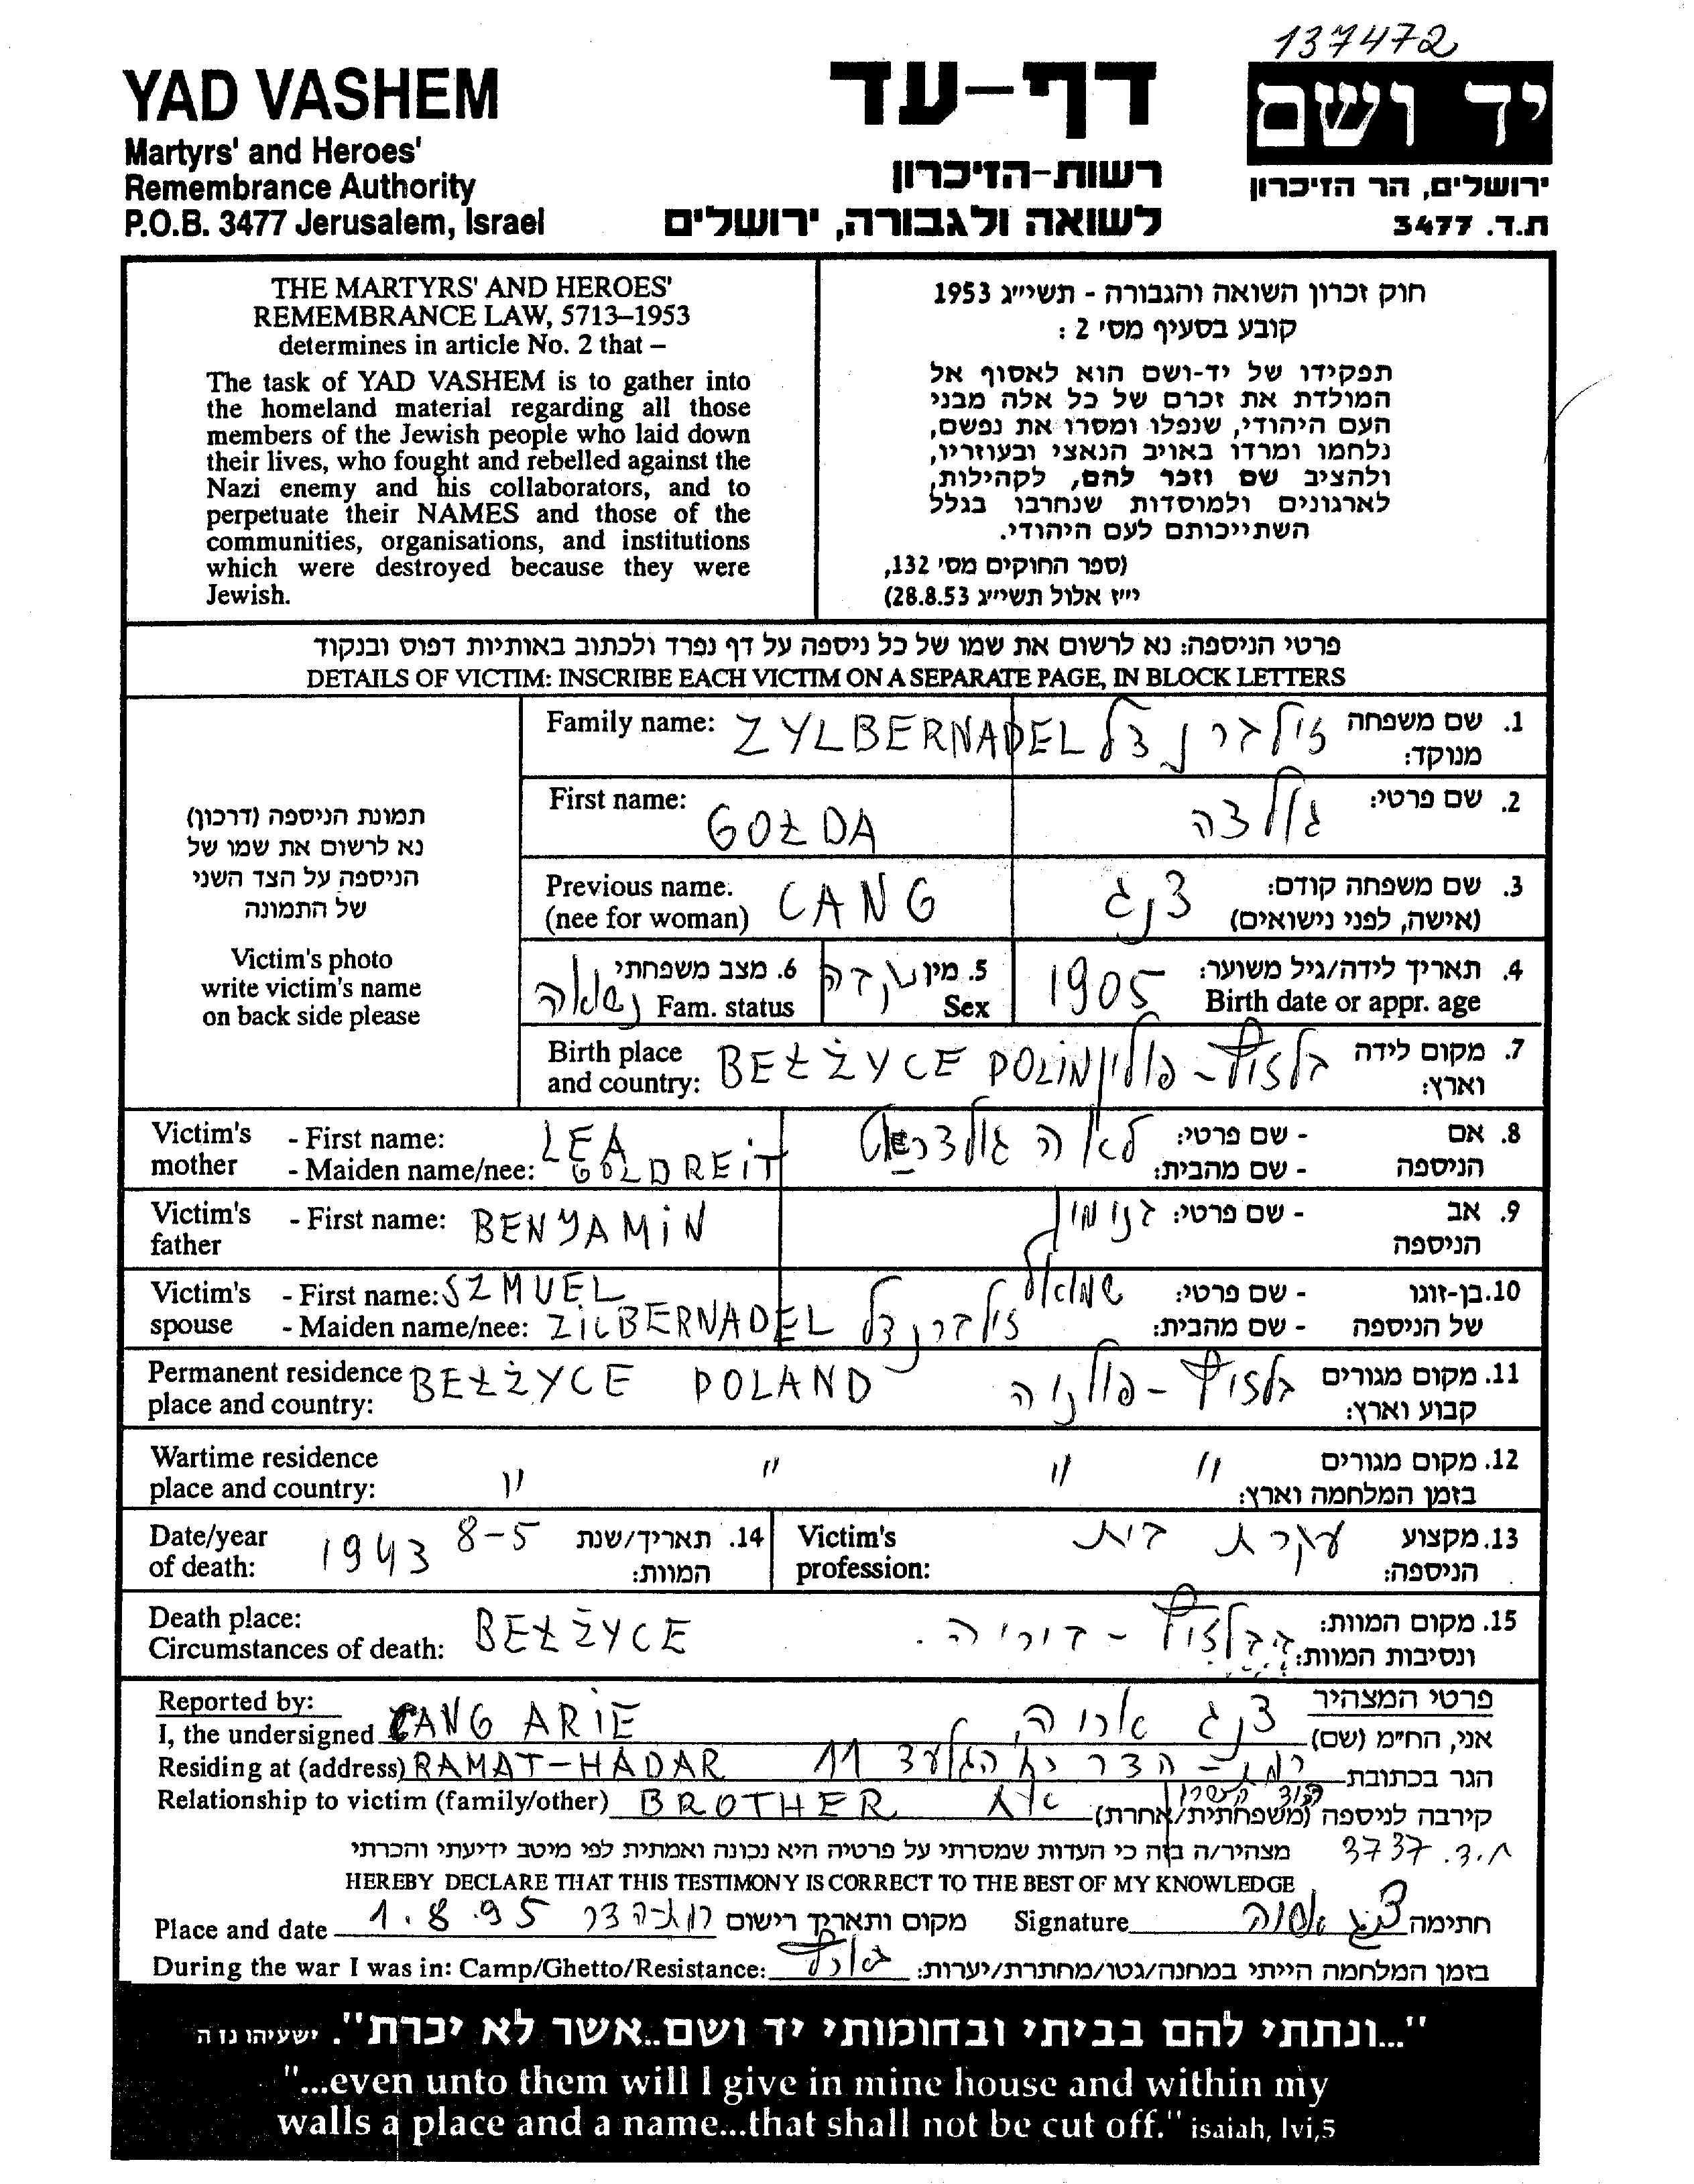 137472
YAD VASHEM
Martyrs' and Heroes'
Remembrance Authority
P.O.B. 3477 Jerusalem, Israel
דף-עד
רשות-הזיכרון
לשואה ולגבורה, ירושלים
יד ושם
ירושלים, הר הזיכרון
ת.ד. 3477
THE MARTYRS' AND HEROES'
REMEMBRANCE LAW, 5713–1953
determines in article No. 2 that –
The task of YAD VASHEM is to gather into
the homeland material regarding all those
members of the Jewish people who laid down
their lives, who fought and rebelled against the
Nazi enemy and his collaborators, and to
perpetuate their NAMES and those of the
communities, organisations, and institutions
which were destroyed because they were
Jewish.
חוק זכרון השואה והגבורה - תשי״ג 1953
קובע בסעיף מס׳ 2 :
תפקידו של יד-ושם הוא לאסוף אל
המולדת את זכרם של כל אלה מבני
העם היהודי, שנפלו ומסרו את נפשם,
נלחמו ומרדו באויב הנאצי ובעוזריו,
ולהציב שם וזכר להם, לקהילות,
לארגונים ולמוסדות שנחרבו בגלל
השתייכותם לעם היהודי.
(ספר החוקים מס׳ 132,
י״ז אלול תשי״ג 28.8.53)
פרטי הניספה: נא לרשום את שמו של כל ניספה על דף נפרד ולכתוב באותיות דפוס ובנקוד
DETAILS OF VICTIM: INSCRIBE EACH VICTIM ON A SEPARATE PAGE, IN BLOCK LETTERS
תמונת הניספה (דרכון)
נא לרשום את שמו של
הניספה על הצד השני
של התמונה
Victim's photo
write victim's name
on back side please
Family name: ZYLBERNADEL זילברנדל 1. שם משפחה
מנוקד:
First name: GOŁDA גולדה 2. שם פרטי:
Previous name. CANG צנג 3. שם משפחה קודם:
(nee for woman) (אישה, לפני נישואים)
נשואה 6. מצב משפחתי נקבה 5. מין 1905 4. תאריך לידה/גיל משוער:
Fam. status Sex Birth date or appr. age
Birth place BEŁŻYCE POLIN בלזיץ - פולין 7. מקום לידה
and country: וארץ:
Victim's - First name: LEA לאה גולדרייט - שם פרטי: 8. אם
mother - Maiden name/nee: GOLDREIT - שם מהבית: הניספה
Victim's - First name: BENYAMIN בנימין - שם פרטי: 9. אב
father הניספה
Victim's - First name: SZMUEL שמואל - שם פרטי: 10. בן-זוגו
spouse - Maiden name/nee: ZILBERNADEL זילברנדל - שם מהבית: של הניספה
Permanent residence BEŁŻYCE POLAND בלזיץ - פולניה 11. מקום מגורים
place and country: קבוע וארץ:
Wartime residence 12. מקום מגורים
place and country: " " " " בזמן המלחמה וארץ:
Date/year 1943 8-5 14. תאריד/שנת Victim's עקרת בית 13. מקצוע
of death: המוות: profession: הניספה:
Death place: BEŁŻYCE בבלזיץ - ביריה. 15. מקום המוות:
Circumstances of death: ונסיבות המוות:
Reported by: פרטי המצהיר
I, the undersigned CANG ARIE צנג אריה אני, הח״מ (שם)
Residing at (address) RAMAT-HADAR רמת-הדר הגלעד 11 הגר בכתובת
Relationship to victim (family/other) BROTHER אח קירבה לניספה (משפחתית/אחרת)
הוד השרון
ת.ד. 3737
מצהיר/ה בזה כי העדות שמסרתי על פרטיה היא נכונה ואמתית לפי מיטב ידיעתי והכרתי
HEREBY DECLARE THAT THIS TESTIMONY IS CORRECT TO THE BEST OF MY KNOWLEDGE
Place and date 1.8.95 רמת-הדר מקום ותאריך רישום Signature צנג אריה חתימה
During the war I was in: Camp/Ghetto/Resistance: בזמן המלחמה הייתי במחנה/גטו/מחתרת/יערות:
"...ונתתי להם בביתי ובחומותי יד ושם..אשר לא יכרת". ישעיהו נו ה
"...even unto them will I give in mine house and within my
walls a place and a name...that shall not be cut off." isaiah, lvi,5